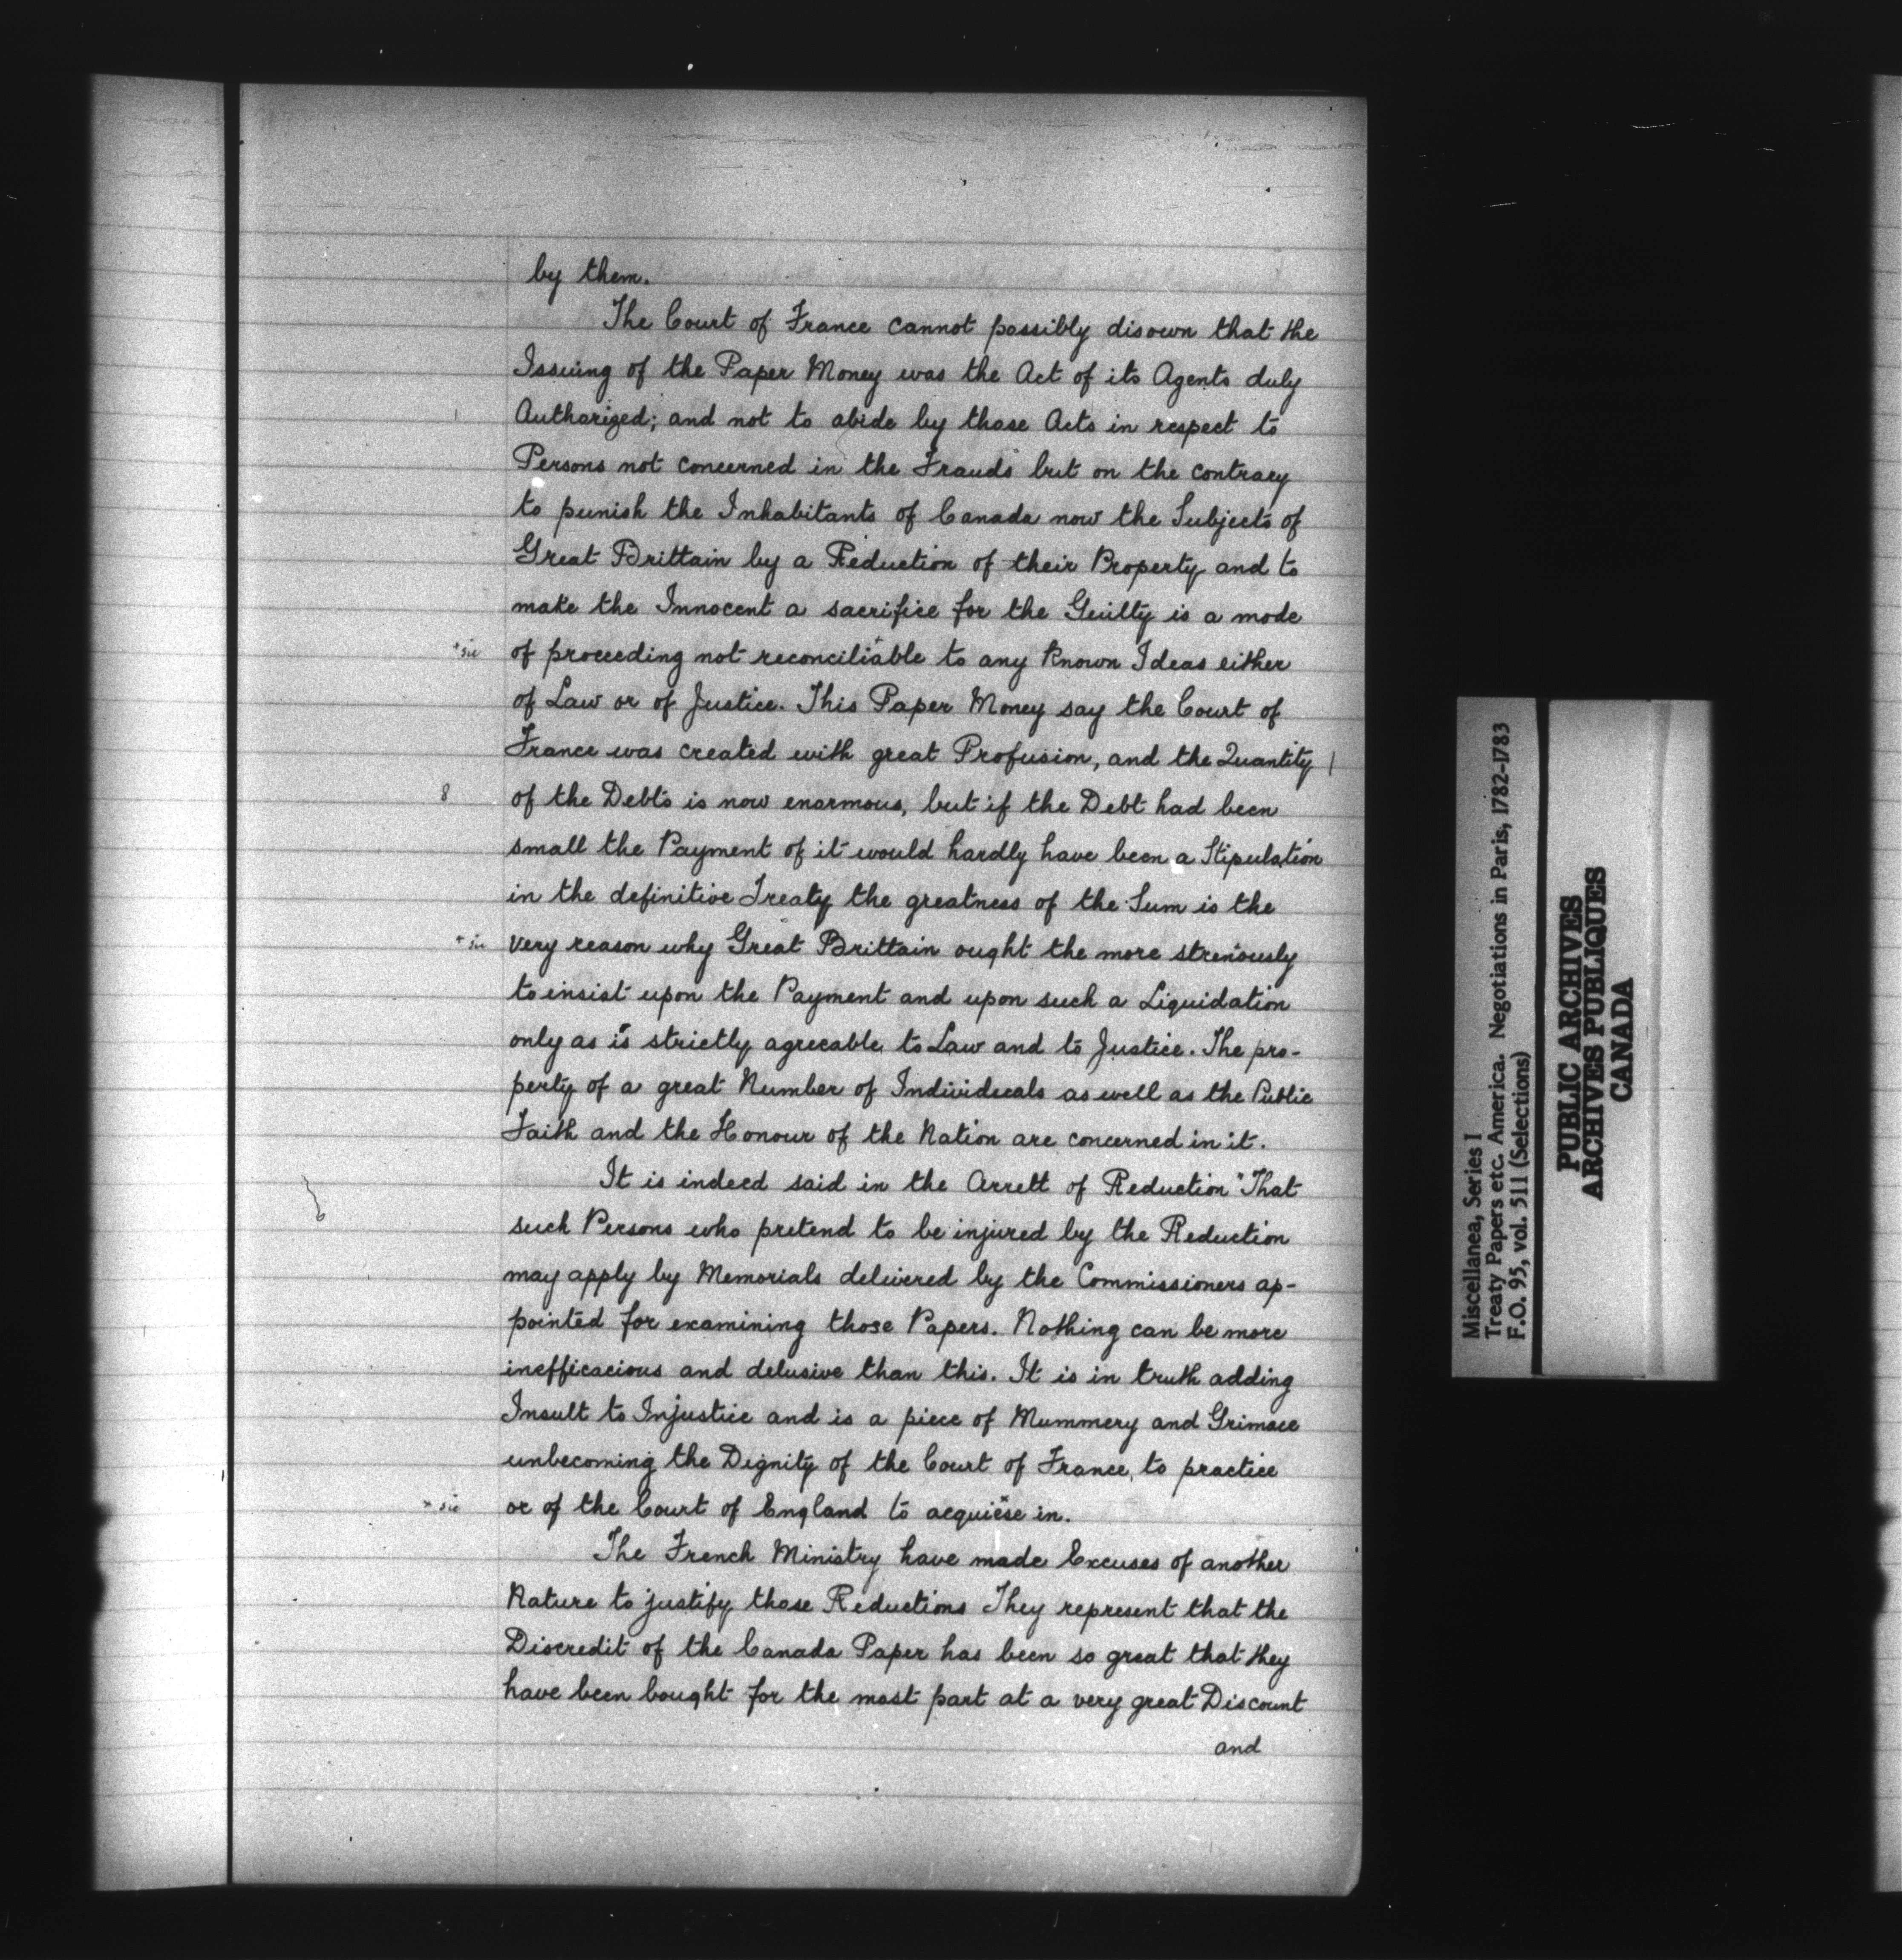 by them.
The Court of France cannot possibly disown that the
Issuing of the Paper Money was the Act of its Agents duly
Authorized; and not to abide by those Acts in respect to
Persons not concerned in the Frauds but on the contrary
to punish the Inhabitants of Canada now the Subjects of
Great Brittain by a Reduction of their Property and to
make the Innocent a sacrifice for the Guilty is a mode
+ sic of proceeding not reconciliable+ to any known Ideas either
of Law or of Justice. This Paper Money say the Court of
France was created with great Profusion, and the Quantity /
8 of the Debts is now enormous, but if the Debt had been
small the Payment of it would hardly have been a Stipulation
in the definitive Treaty the greatness of the Sum is the
+ sic very reason why Great Brittain ought the more streniously
to insist upon the Payment and upon such a Liquidation
only as is strictly agreeable to Law and to Justice. The pro-
perty of a great Number of Individuals as well as the Public
Faith and the Honour of the Nation are concerned in it.
It is indeed said in the Arrett of Reduction "That
such Persons who pretend to be injured by the Reduction
may apply by Memorials delivered by the Commissioners ap-
pointed for examining those Papers. Nothing can be more
inefficacious and delusive than this. It is in truth adding
Insult to Injustice and is a piece of Mummery and Grimace
unbecoming the Dignity of the Court of France, to practice
+ sic or of the Court of England to acquiese+ in.
The French Ministry have made Excuses of another
Nature to justify those Reductions They represent that the
Discredit of the Canada Paper has been so great that they
have been bought for the most part at a very great Discount
and
Miscellanea, Series I
Treaty Papers etc. America. Negotiations in Paris, 1782-1783
F.O. 95, vol. 511 (Selections)
PUBLIC ARCHIVES
ARCHIVES PUBLIQUES
CANADA